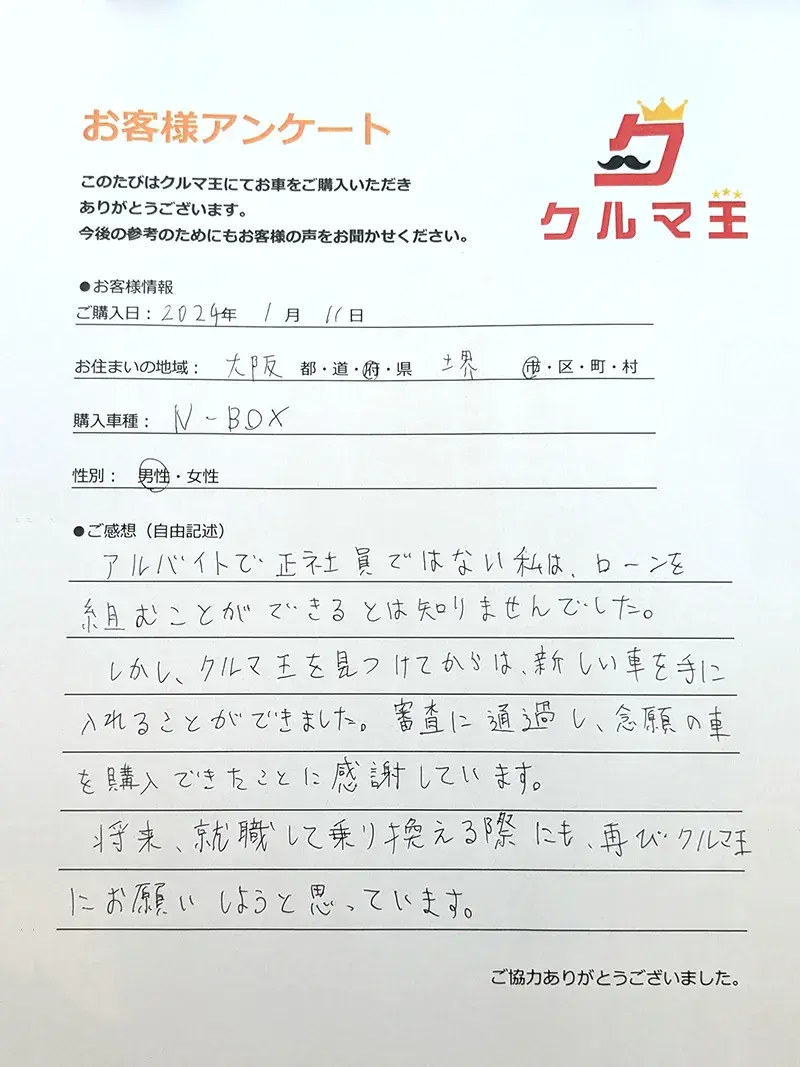 お客様アンケート
このたびはクルマ王にてお車をご購入いただき
ありがとうございます。
今後の参考のためにもお客様の声をお聞かせください。
ク
クルマ王
●お客様情報
ご購入日：2024年 1月 11日
お住まいの地域： 大阪 都・道・府・県 堺 市・区・町・村
購入車種： N-BOX
性別： 男性・女性
●ご感想（自由記述）
アルバイトで正社員ではない私は、ローンを
組むことができるとは知りませんでした。
しかし、クルマ王を見つけてからは、新しい車を手に
入れることができました。審査に通過し、念願の車
を購入できたことに感謝しています。
将来、就職して乗り換える際にも、再びクルマ王
にお願いしようと思っています。
ご協力ありがとうございました。